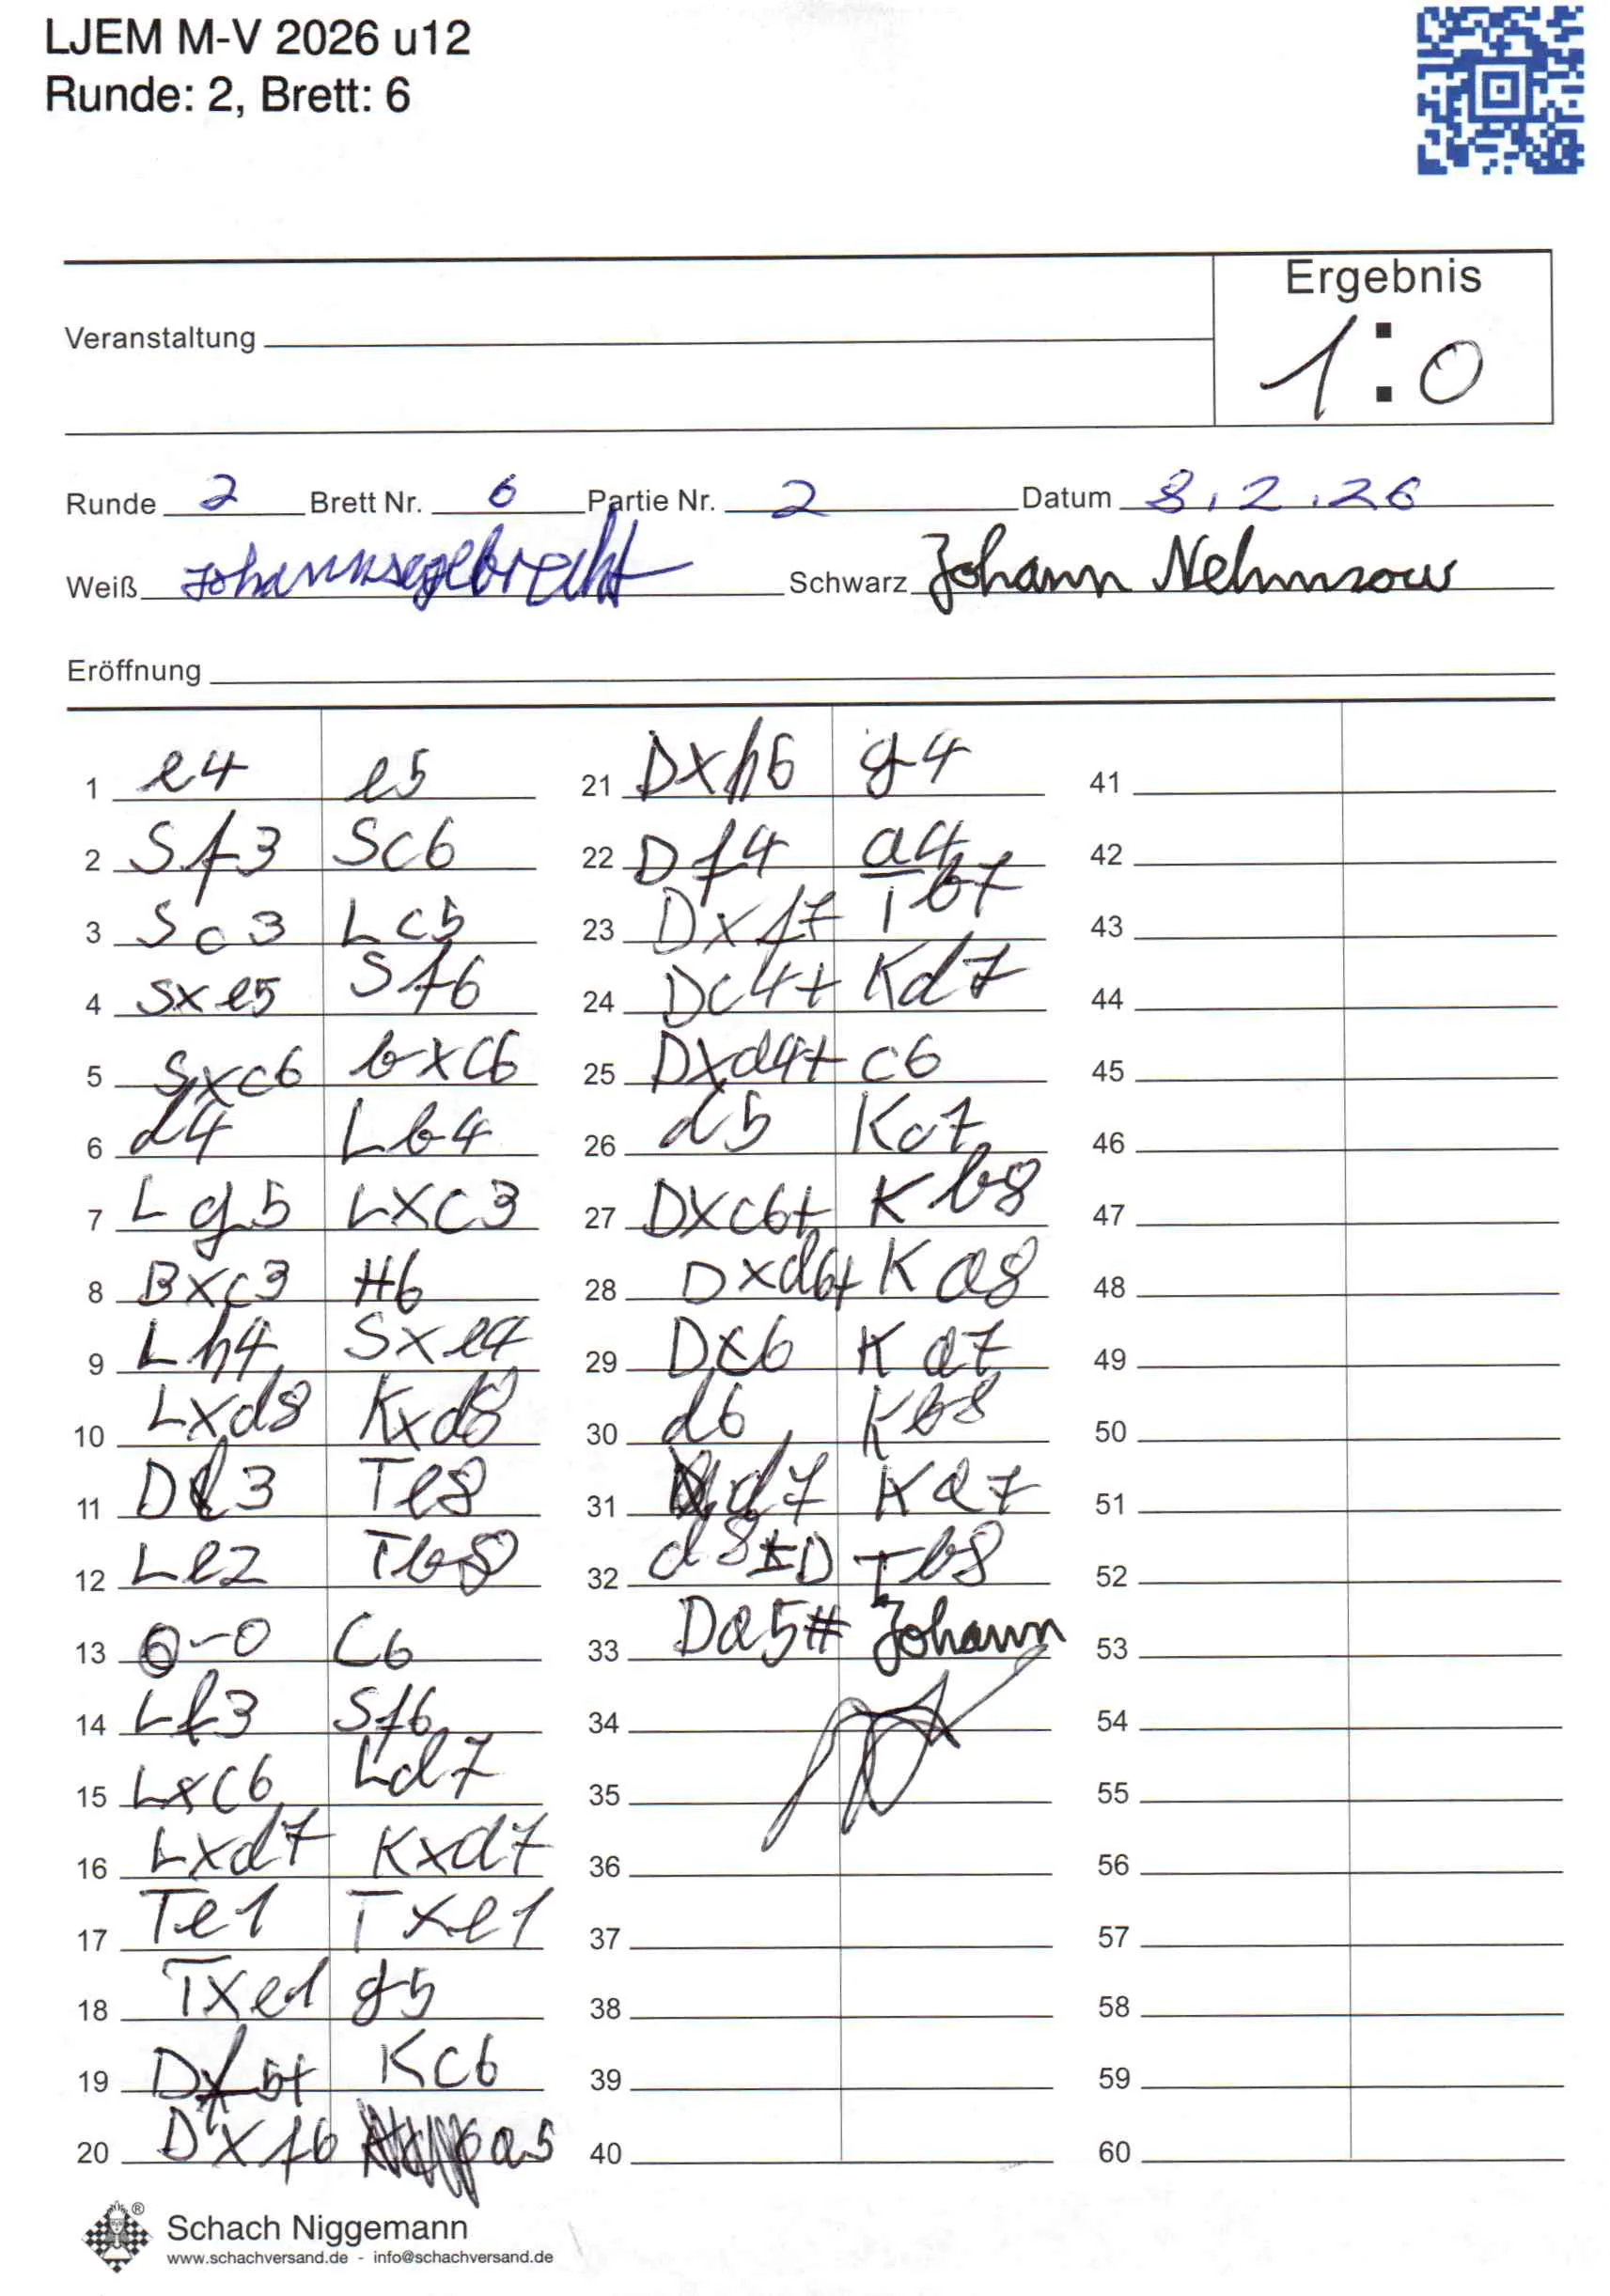 LJEM M-V 2026 u12
Runde: 2, Brett: 6
Ergebnis
1:0
Veranstaltung
Runde 2 Brett Nr. 6 Partie Nr. 2 Datum 8.2.26
Weiß Johannsegebrecht Schwarz Johann Nehmzow
Eröffnung
1 e4 e5
2 Sf3 Sc6
3 Sc3 Lc5
4 Sxe5 Sf6
5 Sxc6 bxc6
6 d4 Lb4
7 Lg5 Lxc3
8 Bxc3 H6
9 Lh4 Sxe4
10 Lxd8 Kxd8
11 Df3 Te8
12 Le2 Tb8
13 0-0 C6
14 Lf3 Sf6
15 Lxc6 Ld7
16 Lxd7 Kxd7
17 Te1 Txe1
18 Txe1 g5
19 Df5+ Kc6
20 Dxf6 a5
21 Dxh6 g4
22 Df4 a4
23 Dxf7 Tb7
24 Dc4+ Kd7
25 Dxd4+ c6
26 d5 Kc7
27 Dxc6+ Kb8
28 Dxd6+ Ka8
29 Dc6 Ka7
30 d6 Kb8
31 d7 Ka7
32 d8=D Tb8
33 Da5# Johann
34
35
36
37
38
39
40
41
42
43
44
45
46
47
48
49
50
51
52
53
54
55
56
57
58
59
60
Schach Niggemann
www.schachversand.de - info@schachversand.de